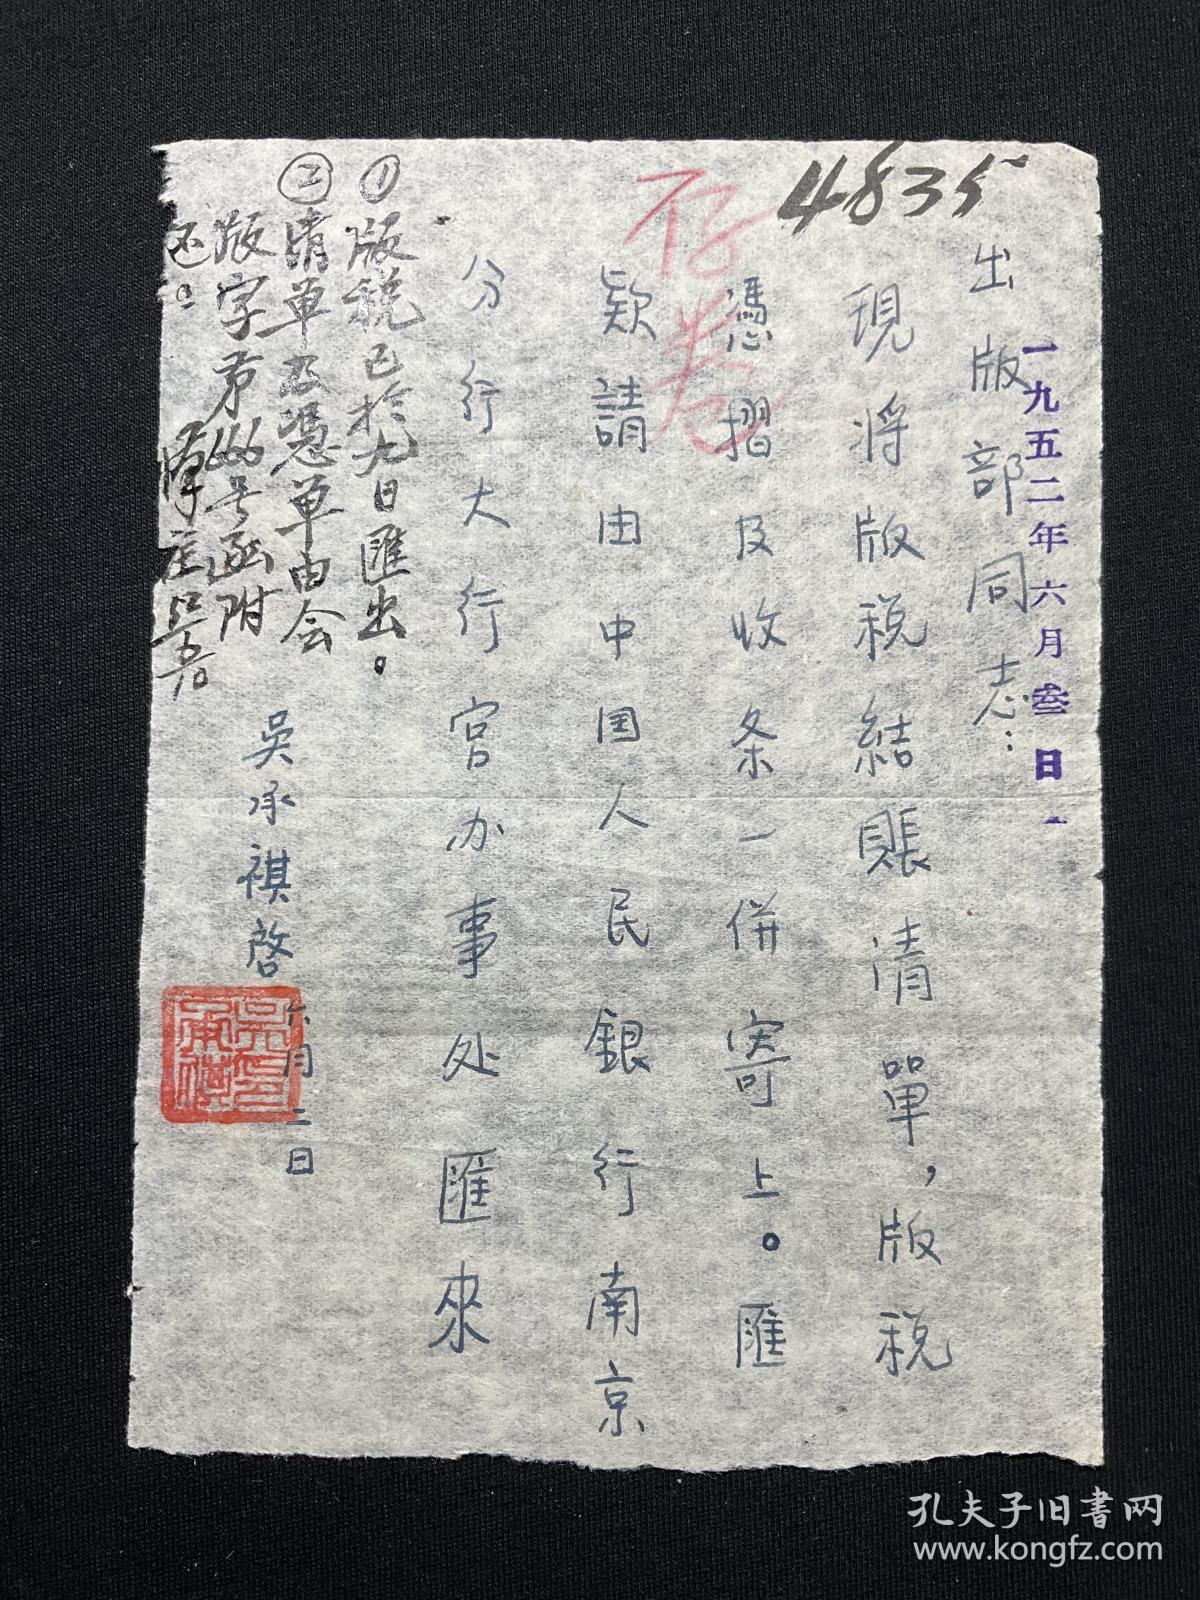 4835
存卷
一九五二年六月叁日
出版部同志：
現将版税結賬清單，版税
憑摺及收条一併寄上。匯
欵請由中国人民銀行南京
分行大行宫办事处匯來
吳承祺啓
六月二日
①版税已於九日匯出。
②清單及憑單由会
版字第466号函附
还。
孔夫子旧書网
www.kongfz.com